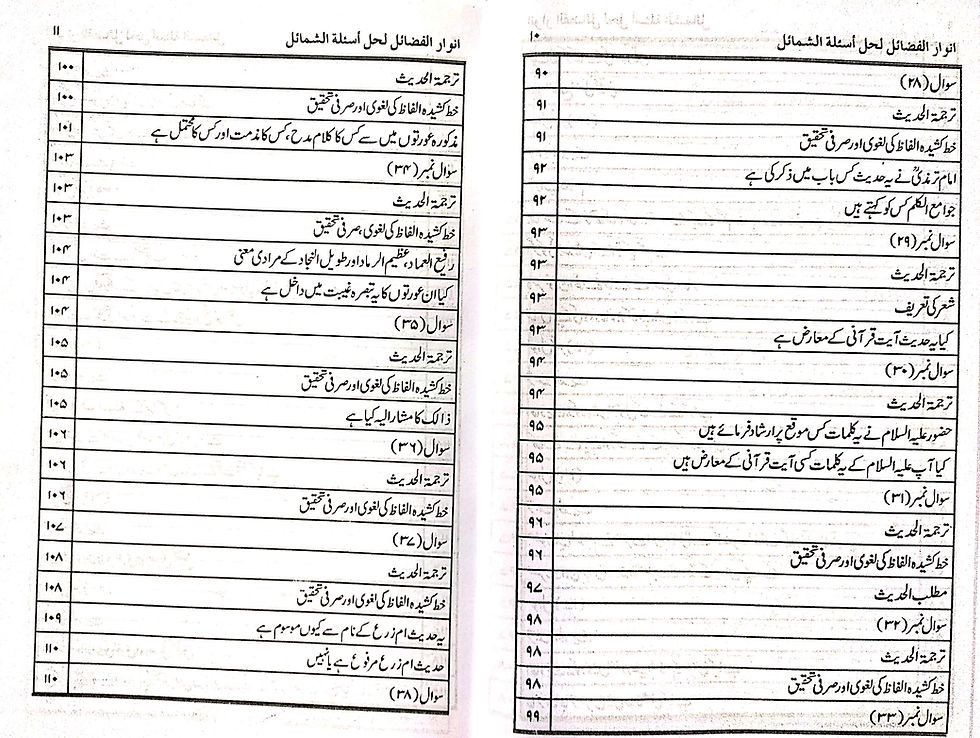 انوار الفضائل لحل أسئلة الشمائل ۱۰
سوال (۲۸) ۹۰
ترجمۃ الحدیث ۹۱
خط کشیدہ الفاظ کی لغوی اور صرفی تحقیق ۹۱
امام ترمذیؒ نے یہ حدیث کس باب میں ذکر کی ہے ۹۲
جوامع الکلم کس کو کہتے ہیں ۹۲
سوال نمبر (۲۹) ۹۳
ترجمۃ الحدیث ۹۳
شعر کی تعریف ۹۳
کیا یہ حدیث آیت قرآنی کے معارض ہے ۹۳
سوال نمبر (۳۰) ۹۴
ترجمۃ الحدیث ۹۴
حضور علیہ السلام نے یہ کلمات کس موقع پر ارشاد فرمائے ہیں ۹۵
کیا آپ علیہ السلام کے یہ کلمات کسی آیت قرآنی کے معارض ہیں ۹۵
سوال نمبر (۳۱) ۹۵
ترجمۃ الحدیث ۹۶
خط کشیدہ الفاظ کی لغوی اور صرفی تحقیق ۹۶
مطلب الحدیث ۹۷
سوال نمبر (۳۲) ۹۸
ترجمۃ الحدیث ۹۸
خط کشیدہ الفاظ کی لغوی اور صرفی تحقیق ۹۸
سوال نمبر (۳۳) ۹۹
انوار الفضائل لحل أسئلة الشمائل ۱۱
ترجمۃ الحدیث ۱۰۰
خط کشیدہ الفاظ کی لغوی اور صرفی تحقیق ۱۰۰
مذکورہ عورتوں میں سے کس کا کلام مدح، کس کا مذمت اور کس کا محتمل ہے ۱۰۱
سوال نمبر (۳۴) ۱۰۳
ترجمۃ الحدیث ۱۰۳
خط کشیدہ الفاظ کی لغوی، صرفی تحقیق ۱۰۳
رفیع العماد، عظیم الرماد اور طویل النجاد کے مرادی معنی ۱۰۴
کیا ان عورتوں کا یہ تبصرہ غیبت میں داخل ہے ۱۰۴
سوال (۳۵) ۱۰۴
ترجمۃ الحدیث ۱۰۵
خط کشیدہ الفاظ کی لغوی اور صرفی تحقیق ۱۰۵
ذالک کا مشار الیہ کیا ہے ۱۰۵
سوال (۳۶) ۱۰۶
ترجمۃ الحدیث ۱۰۶
خط کشیدہ الفاظ کی لغوی اور صرفی تحقیق ۱۰۶
سوال (۳۷) ۱۰۷
ترجمۃ الحدیث ۱۰۸
خط کشیدہ الفاظ کی لغوی اور صرفی تحقیق ۱۰۸
یہ حدیث ام زرع کے نام سے کیوں موسوم ہے ۱۰۹
حدیث ام زرع مرفوع ہے یا نہیں ۱۱۰
سوال (۳۸) ۱۱۰